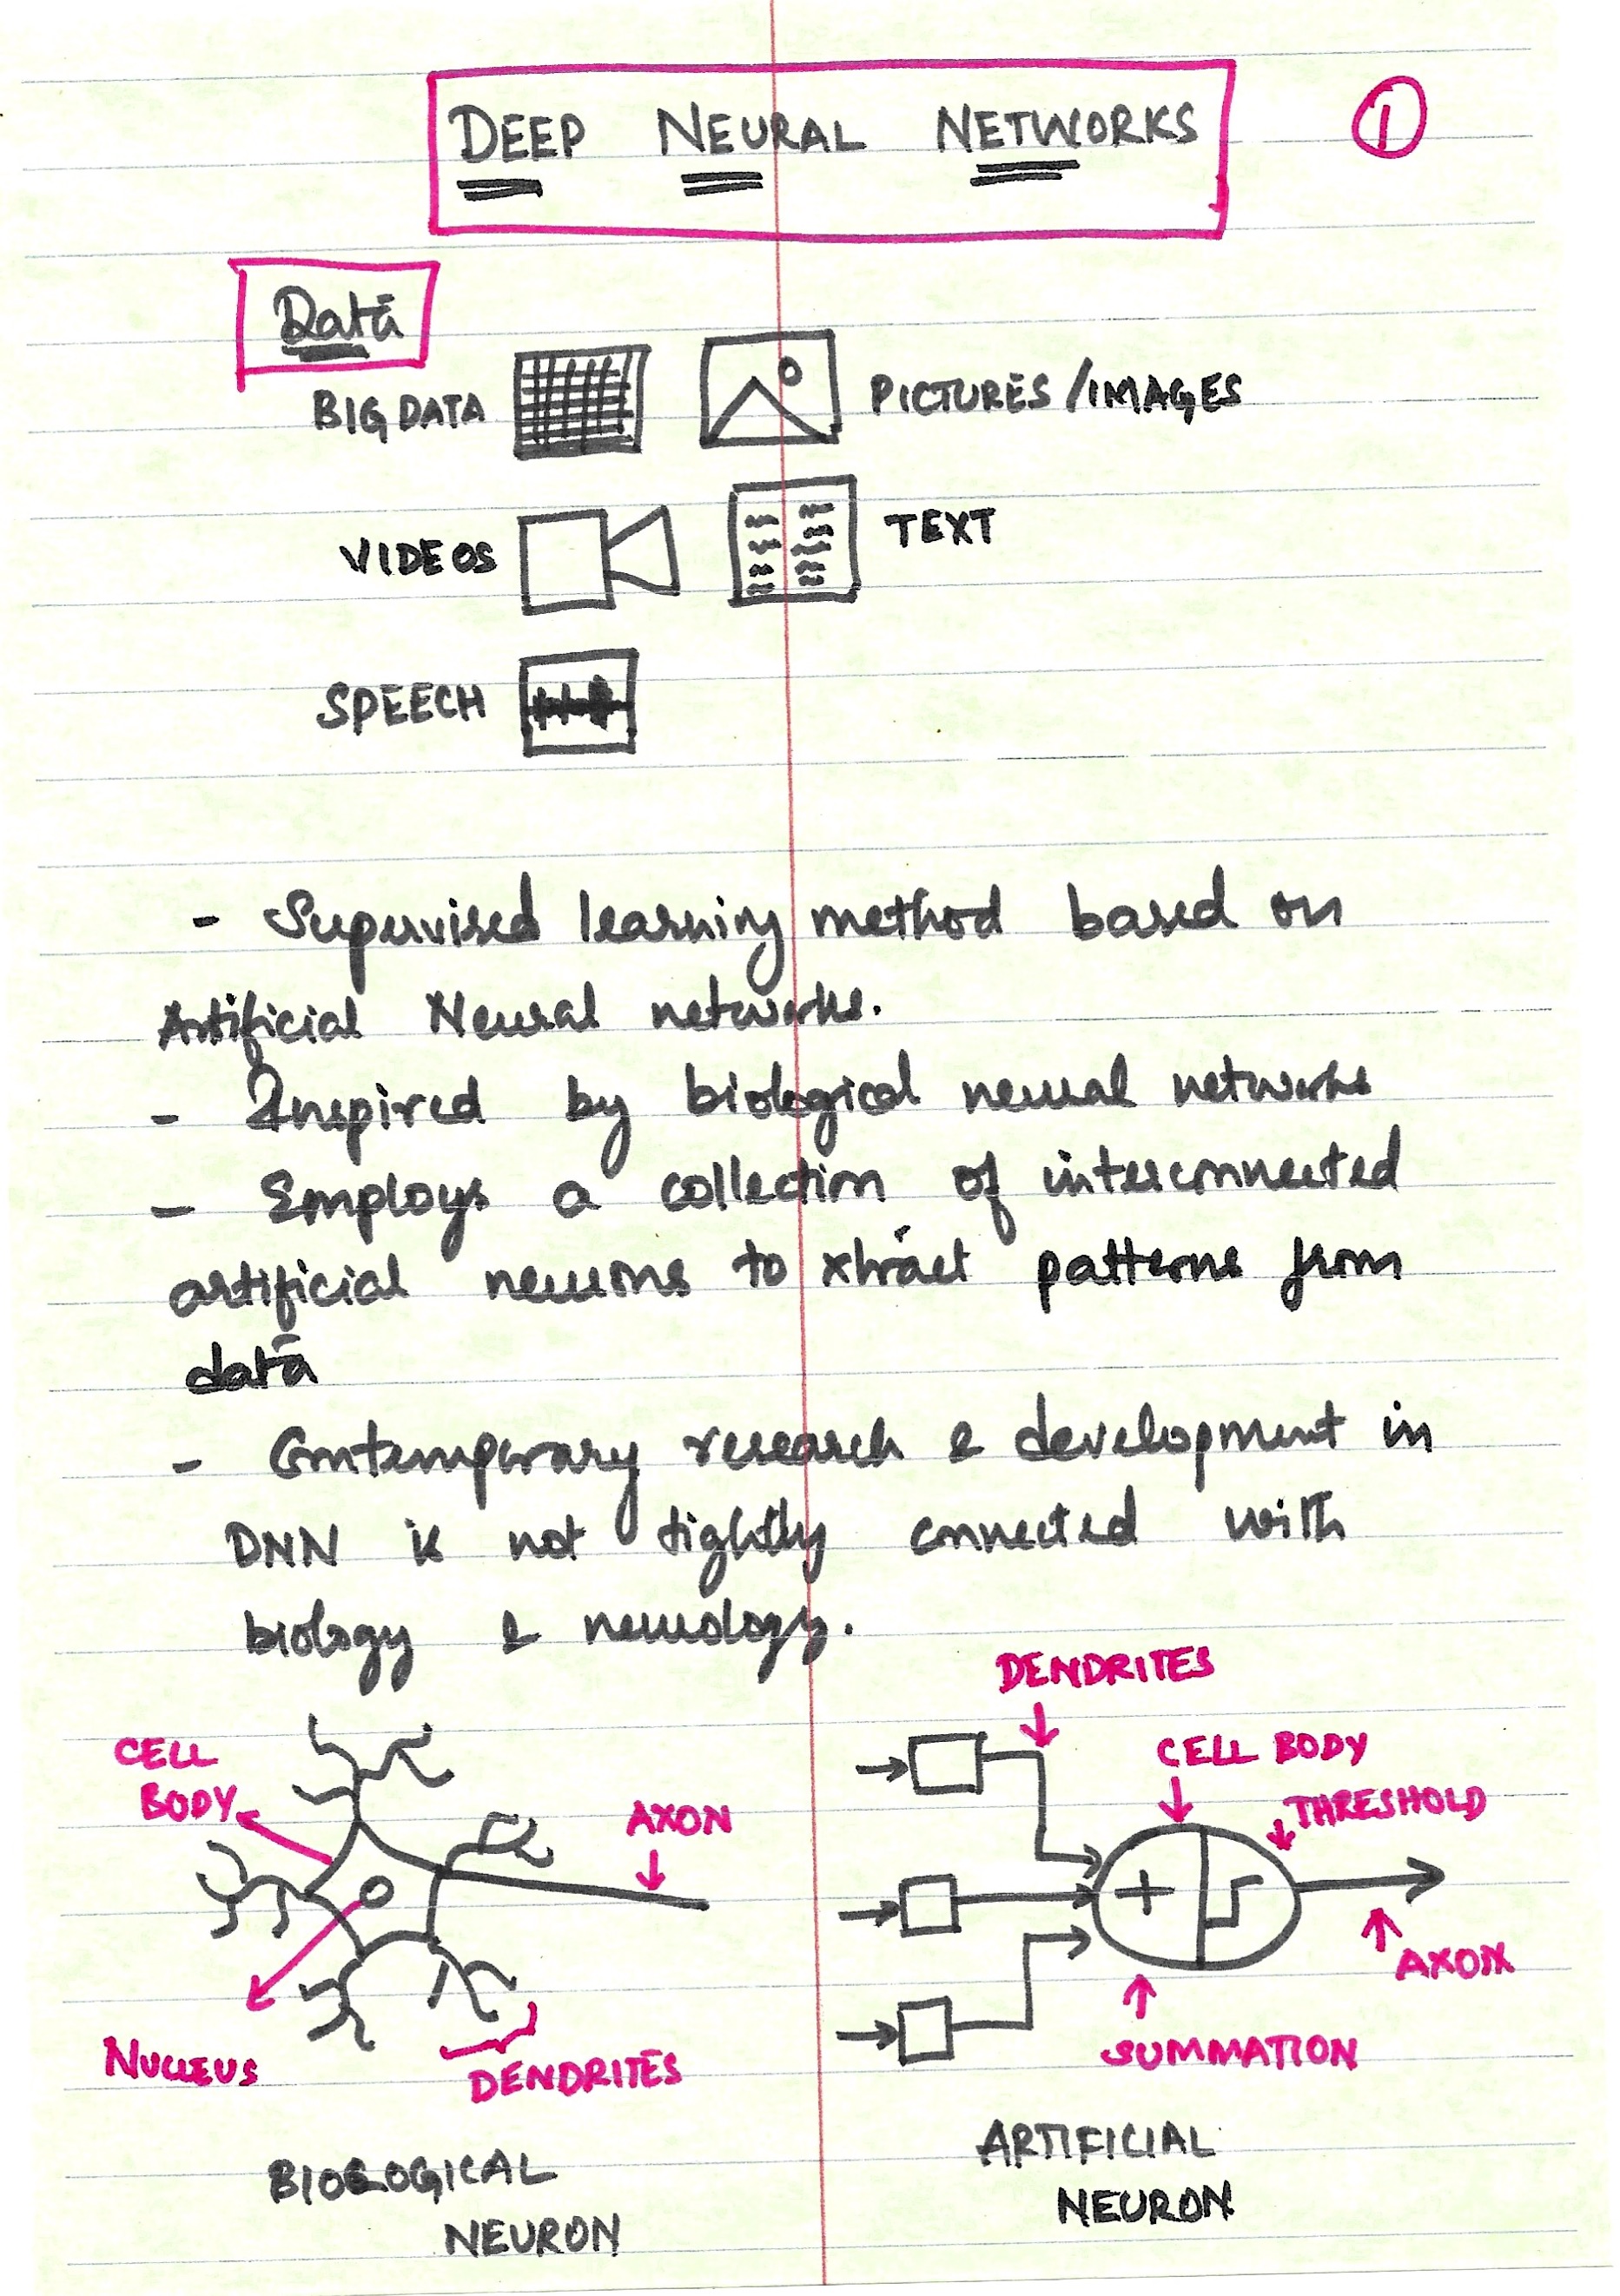 DEEP NEURAL NETWORKS
1
Data
BIG DATA
PICTURES/IMAGES
VIDEOS
TEXT
SPEECH
- Supervised learning method based on
Artificial Neural networks.
- Inspired by biological neural networks
- Employs a collection of interconnected
artificial neurons to xtract patterns from
data
- Contemporary research & development in
DNN is not tightly connected with
biology & neurology.
DENDRITES
CELL
BODY
AXON
CELL BODY
THRESHOLD
+
AXON
NUCLEUS
DENDRITES
SUMMATION
BIOLOGICAL
NEURON
ARTIFICIAL
NEURON